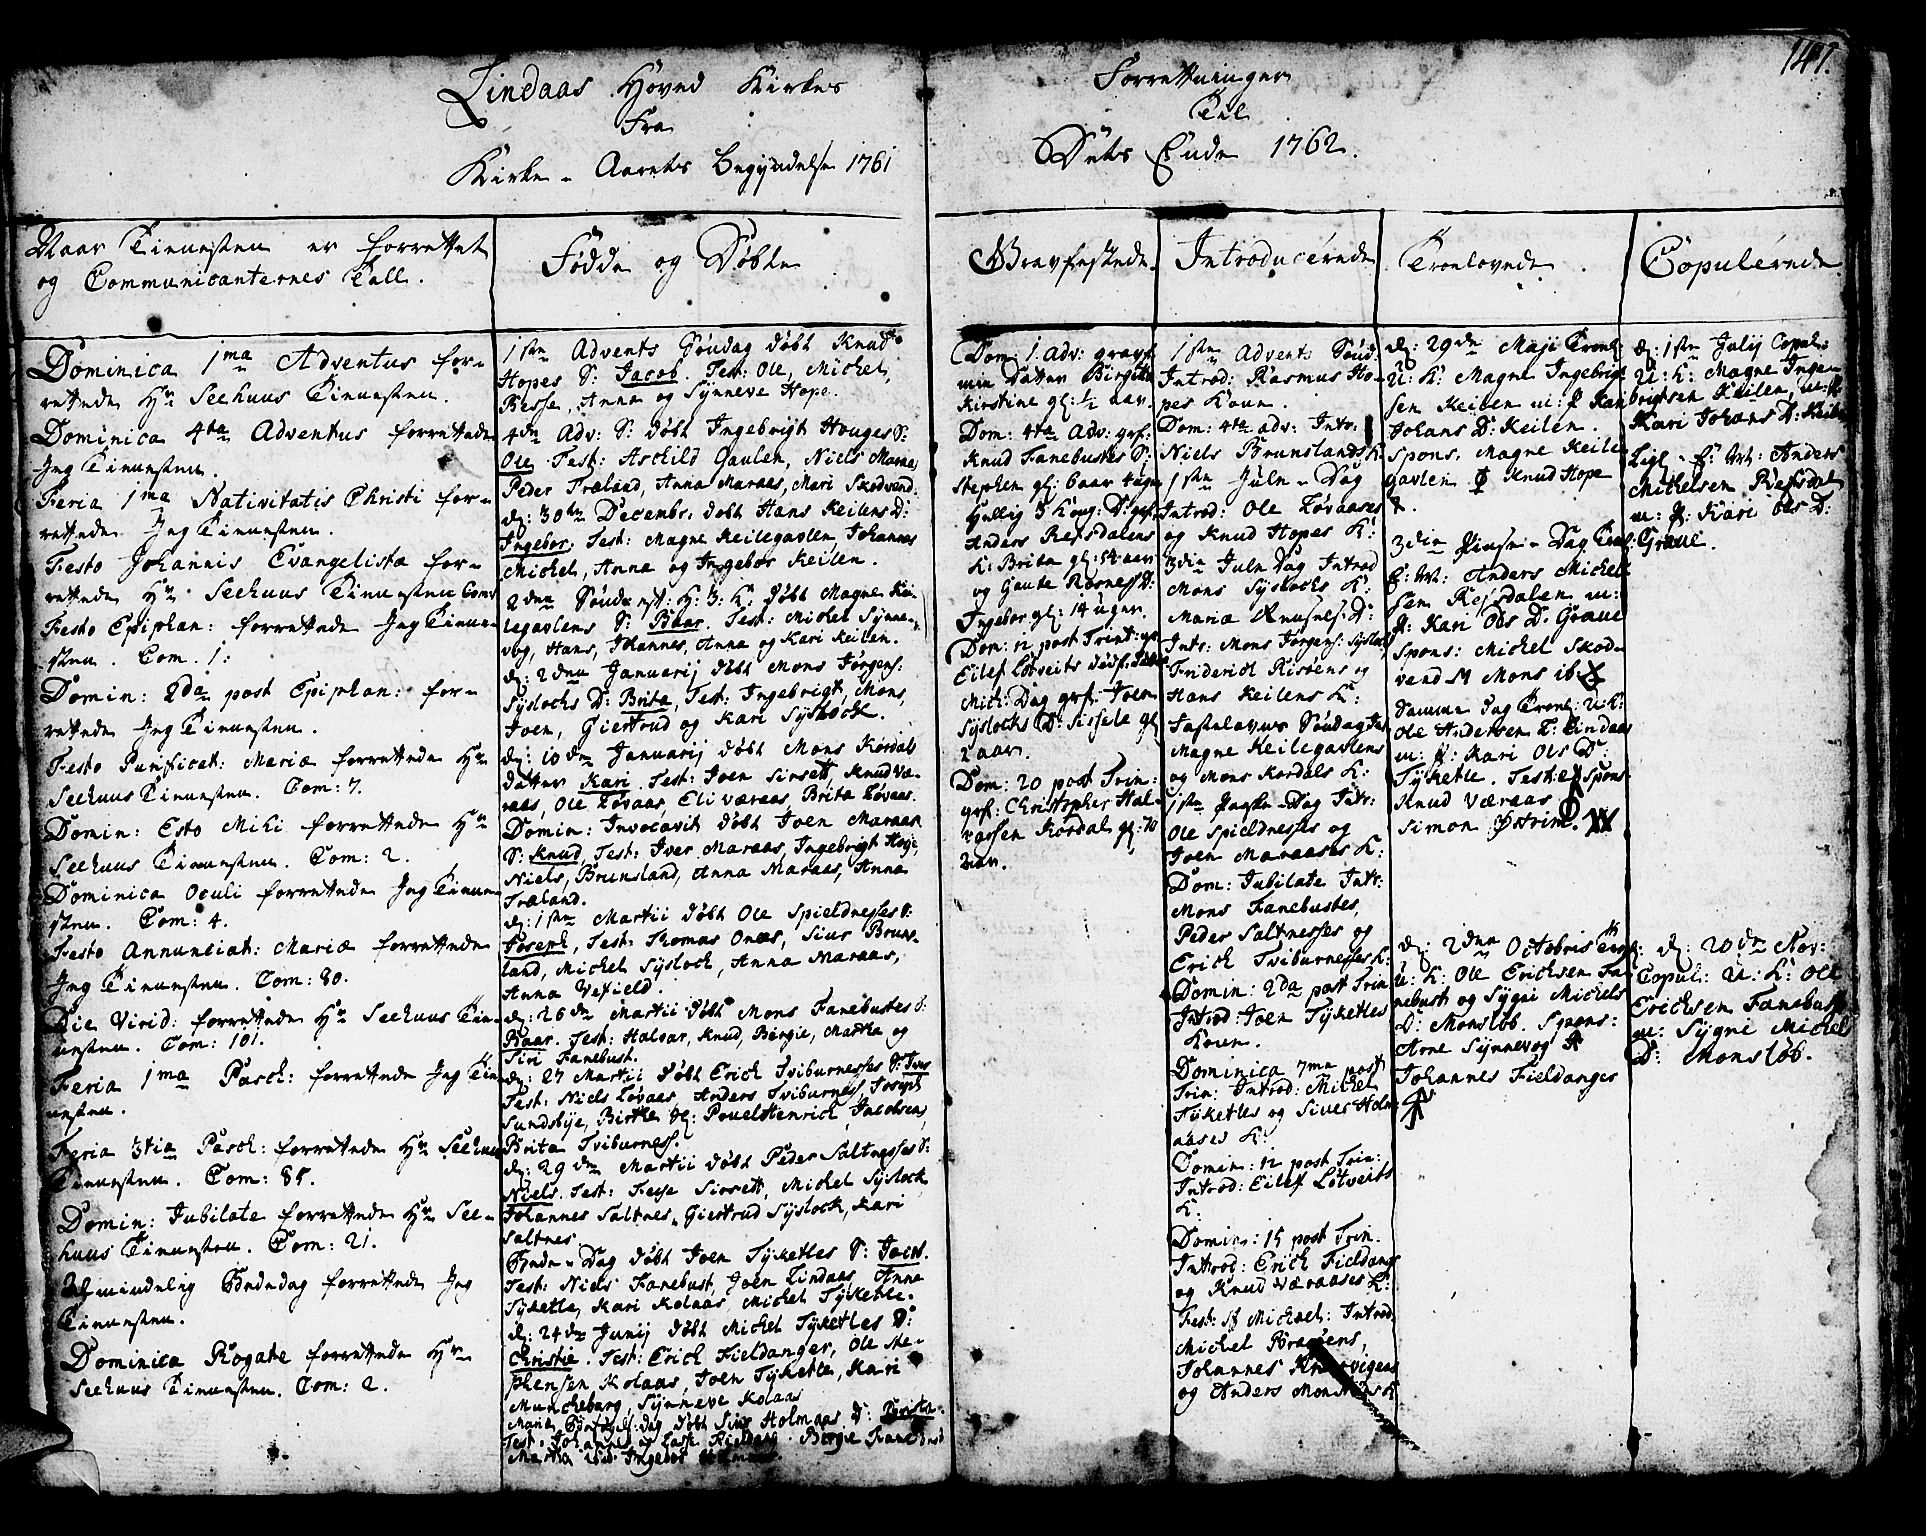 141.
Lindaas Hoved Kirkes Forretninger
Fra Til
Kirke-Aarets Begyndelse 1761 Dets Ende 1762.
Naar Tienesten er forrettet
og Communicanternes Tall.
Dominica 1ma Adventus for-
rettede Hr Seehuus Tienesten.
Dominica 4ta Adventus forrettede
Jeg Tienesten.
Feria 1ma Nativitatis Christi for-
rettede Jeg Tienesten.
Festo Johannis Evangelistæ for-
rettede Hr Seehuus Tienesten
Festo Epiphan: forrettede Jeg Tiene-
sten. Com. 1:
Domin: 2da post Epiphan: for-
rettede Jeg Tienesten.
Festo Purificat: Mariæ forrettede Hr
Seehuus Tienesten. Com: 7.
Domin: Esto Mihi forrettede Hr
Seehuus Tienesten. Com: 2.
Dominica Oculi forrettede Jeg Tiene-
sten. Com: 4.
Festo Annunciat: Mariæ forrettede
Jeg Tienesten. Com: 80.
Die Virid: forrettede Hr Seehuus Tie-
nesten. Com: 101.
Feria 1ma Pasch: forrettede Jeg Tie-
nesten.
Feria 3tia Pasch: forrettede Hr Seehuus
Tienesten. Com: 85.
Domin: Jubilate forrettede Hr See-
huus Tienesten. Com: 21.
Almindelig Bededag forrettede Jeg
Tienesten.
Dominica Rogate forrettede Hr
Seehuus Tienesten. Com: 2.
Fødde og Døbte
1ste Advents Søndag døbt Knud
Hopes S: Jacob. Test: Ole, Michel,
Besse, Anna og Synneve Hope.
4de Adv: S: døbt Ingebrigt Houges S:
Ole Test: Aschild Gavlen, Niels Maraas
Peder Træland, Anna Maraas, Mari Skodvend.
d: 30te Decembr: døbt Hans Keilens D:
Ingebor. Test: Magne Keilegavlen, Johannes
Michel, Anna og Ingebor Keilen.
2den Søndag eft: H: 3: K: døbt Magne Kei-
legavlens S: Baar. Test: Michel Synne-
vog, Hans, Johannes, Anna og Kari Keilen.
d: 2den Januarij døbt Mons Jørgens:
Syslochs D: Brite, Test: Ingebrigt, Mons,
Joen, Giertrud og Kari Syslock.
d: 10de Januarij døbt Mons Kordals
datter Kari. Test: Joen Sirsett, Knud Væ-
raas, Ole Løvaas, Eli Væraas, Brita Løvaas.
Domin: Invocavit døbt Joen Maraas
S: Knud, Test: Iver Maraas, Ingebrigt Hope,
Niels, Brunsland, Anna Maraas, Anna
Træland.
d: 1ste Martii døbt Ole Spieldnesses S:
Joseph, Test: Thomas Onæs, Siur Bruns-
land, Michel Syslock, Anna Maraas,
Anna Vefield.
d: 26de Martii døbt Mons Fanebustes S:
Baar. Test: Halvar, Knud, Bergie, Martha og
Siri Fanebust.
d: 27 Martii døbt Erich Tviburnesses S: Iver
Test: Niels Løvaas, Anders Tviburness, Joseph
Sundsbye, Birthe Povel Henrich Jacobsen,
Brita Tviburness.
d: 29de Martii døbt Peder Saltnesses S:
Niels. Test: Feye Sirsett, Michel Syslock
Johannes Saltnes, Giertrud Syslock, Kari
Saltnes.
Bede-Dag døbt Joen Tyketles S: Jacob.
Test: Niels Fanebust, Joen Lindaas, Anna
Tyketle, Kari Kolaas, Michel Tyketle.
d: 24de Junij døbt Michel Tyketles D:
Christie. Test: Erich Fieldanger, Ole Ste-
phensen Kolaas, Joen Tyketle, Kari
Muncheberg, Synneve Kolaas
Mariæ døbt Siur Holmaas D:
Test: Johannes Bergie Fanebust
Martha Ingebor
Gravfæstede.
Dom 1. Adv: gravf
min Datter Birgitta
Kirstine gl: 1/2 aar.
Dom: 4ta Adv: grf:
Knud Fanebustes S:
Stephen gl: 6 aar 4 uger
Hellig 3 Kong: D: grf
Anders Reisdalens
K: Brita gl: 54 aar
og Gaute Risnes D:
Ingebor gl: 14 uger.
Dom: 12 post Trint: grf
Eilef Lotveits
Mich: Dag grf: Joen
Syslocks D: Sissele gl
2 aar.
Dom: 20 post Trin:
grf: Christopher Hal-
varsen Kordal gl: 70
aar.
Introducerede
1ste Advents Sønd:
Introd: Rasmus Ho-
pes Kone.
Dom: 4ta adv: Intr:
Niels Brunslands K:
1ste Jule-Dag
Introd: Ole Løvaases
og Knud Hopes K:
3die Jule Dag Introd
Mons Syslochs K:
Mariæ D:
Intr: Mons Jørgens: Syslock
Friderich Risøens og
Hans Keilens K:
Fastelavns Søndag Int
Magne Keilegavlens
og Mons Kordals K:
1ste Paaske-Dag Intr:
Ole Spieldnesses og
Joen Maraases K:
Dom: Jubilate Intr:
Mons Fanebustes,
Peder Saltnesses og
Erich Tviburnesses K:
Domin: 2da post Trin
Introd: Joen Tyketles
Kone.
Dominica 7ma post
Trin: Introd: Michel
Tyketles og Siver Holm-
aases K:
Domin: 12 post Trin:
Introd: Eilef Lotveits
K:
Domin: 15 post Trin.
Introd: Erich Fieldang
og Knud Væraases K:
Fest: S Michael: Introd
Michel
Johannes
og Anders K
Troelovede.
d: 29de Maji Troel:
U: K: Magne Ingebrigt
sen Keilen m: P: Kari
Johans D: Keilen.
Spons. Magne Keile
gavlen og Knud Hope
3die Pinse-Dag Troel:
E: M: Anders Michel
sen Reisdalen m:
P: Kari Ols D: Graue
Spons: Michel Skod-
vend Mons ib:
Samme Dag Troel: U: K:
Ole Andersen L: Lindaas
m: P: Kari Ols D:
Tyketle. Teste Spons
Knud Væraas
Simon Østrim.
d: 2den Octobris Troel:
U: K: Ole Erichsen Fa-
nebust og Sygni Michels
D: Monsløb. Spons:
Arne Synnevog
Johannes Fieldanger
Copulerede
d: 1ste July Copul:
U: K: Magne Inge-
brigtsen Keilen, m: P:
Kari Johans D: Keile
Ligl. E: M: Anders
Michelsen Reisdal
m: P: Kari Ols D:
Graue.
d: 20de Nov:
Copul: U: K: Ole
Erichsen Fanebust
m: Sygni Michels
D: Monsløb.